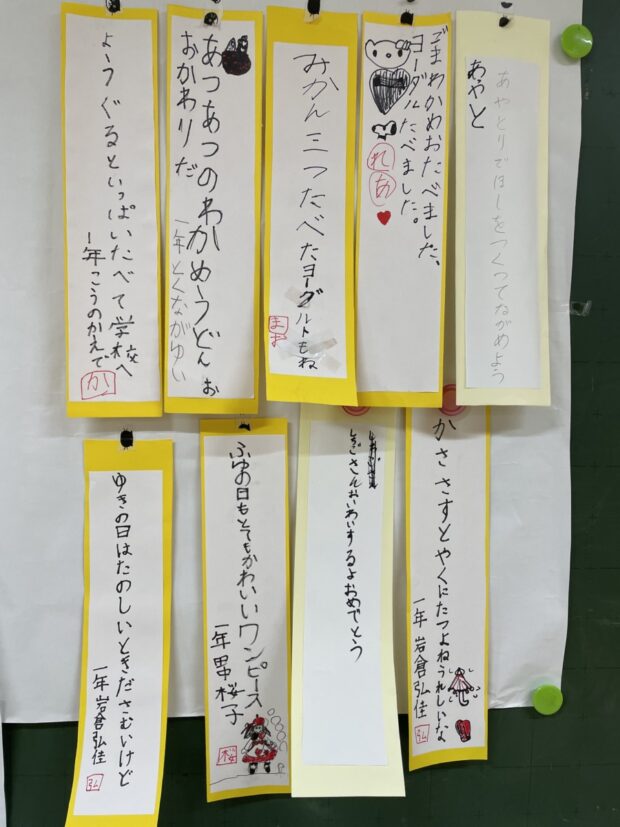 あやとりでほしをつくってながめよう
あやと
ごまわかめおたべました、
ヨーグルたべました。
れあ
みかん三つたべたヨーグルトもね
まお
あつあつのわかめうどんお
おかわりだ
一年とくながゆい
よーうぐるといっぱいたべて学校へ
一年こうのかえで
か
かささすとやくにたつよねうれしいな
一年 岩倉弘佳
弘
さんおいわいするよおめでとう
ふゆの日もとてもかわいいワンピース
一年 田中桜子
桜
ゆきの日はたのしいときださむいけど
一年 岩倉弘佳
弘